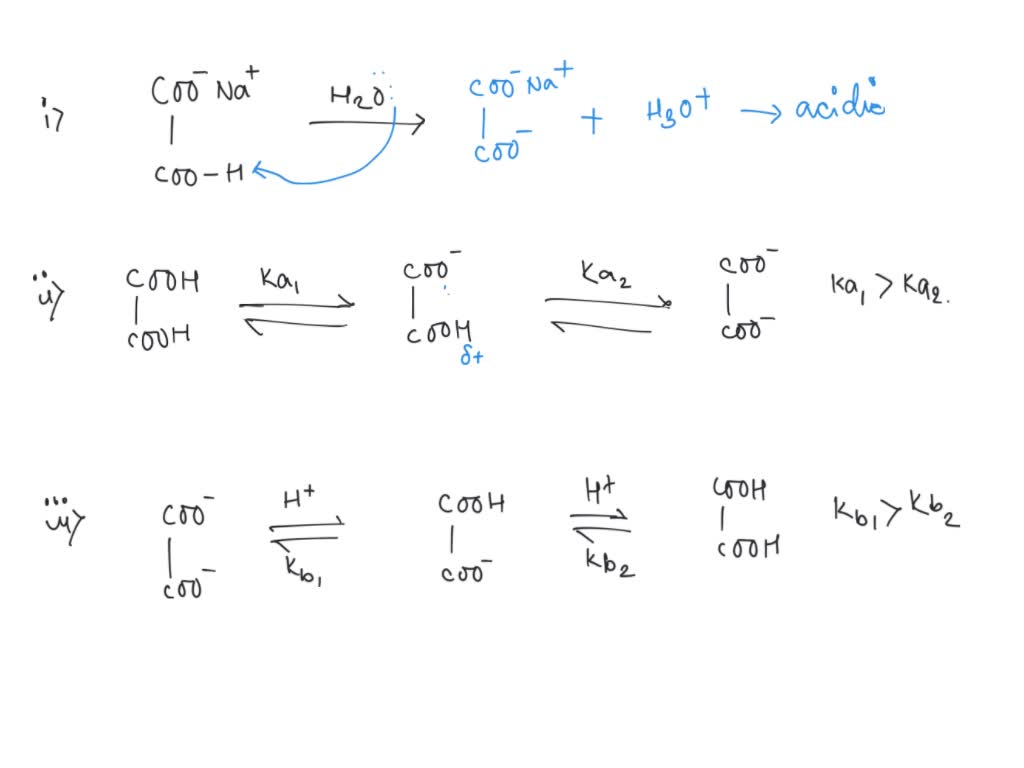 i) COO⁻ Na⁺ | COO-H H2O: → COO⁻ Na⁺ | COO⁻ + H3O⁺ → acidic
ii) COOH | COOH ⇌ Ka1 COO⁻ | COOH δ+ ⇌ Ka2 COO⁻ | COO⁻ Ka1 > Ka2.
iii) COO⁻ | COO⁻ ⇌ H⁺ Kb1 COOH | COO⁻ ⇌ H⁺ Kb2 COOH | COOH Kb1 > Kb2